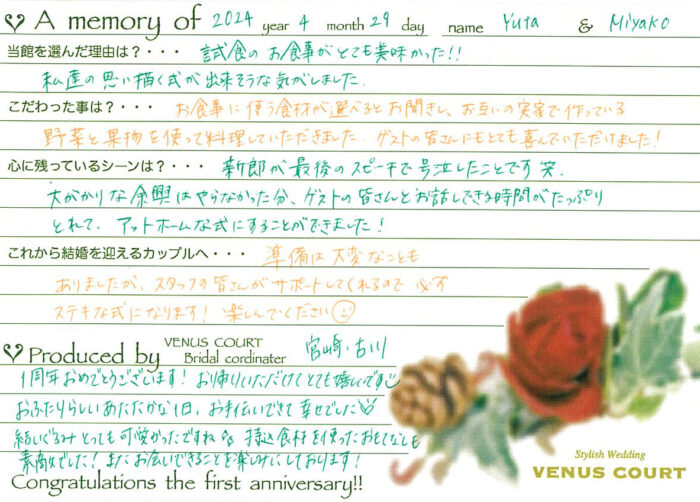 A memory of 2024 year 4 month 29 day name Yuta & Miyako
当館を選んだ理由は？・・・ 試食のお食事がとても美味かった!!
私達の思い描く式が出来そうな気がしました.
こだわった事は？・・・ お食事に使う食材が選べるとお聞きし、お互いの実家で作っている
野菜と果物を使って料理していただきました. ゲストの皆さんにもとても喜んでいただけました!
心に残っているシーンは？・・・ 新郎が最後のスピーチで号泣したことです 笑.
大がかりな余興はやらなかった分、ゲストの皆さんとお話しできる時間がたっぷり
とれて、アットホームな式にすることができました!
これから結婚を迎えるカップルへ・・・ 準備は大変なことも
ありましたが、スタッフの皆さんがサポートしてくれるので 必ず
ステキな式になります! 楽しんでください
Produced by VENUS COURT Bridal cordinater 宮崎・古川
1周年おめでとうございます! お帰りいただけてとても嬉しいです
おふたりらしいあたたかな1日、お手伝いできて幸せでした
結いぐるみとっても可愛かったですね 持込食材を使ったおもてなしも
素敵でした! またお会いできることを楽しみにしております!
Congratulations the first anniversary!!
Stylish Wedding
VENUS COURT